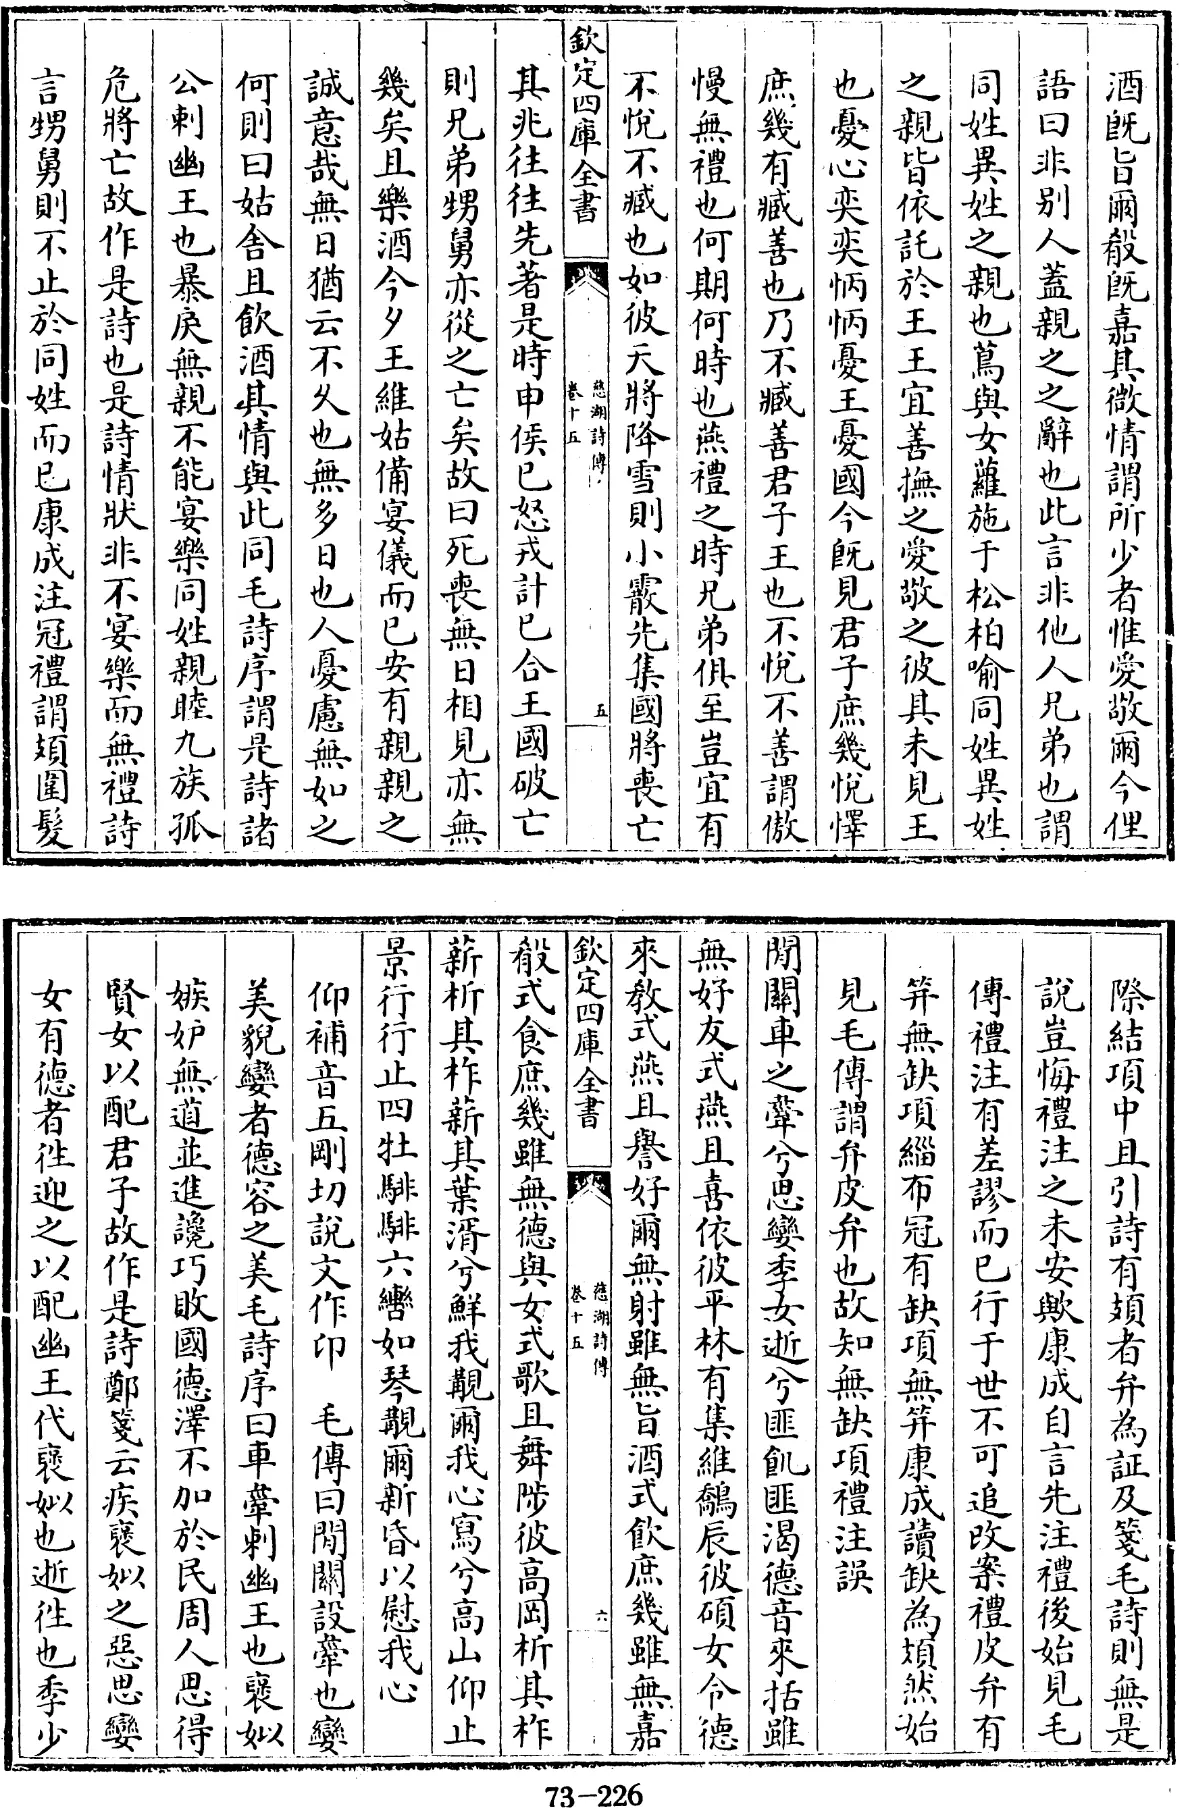 酒既旨爾殽既嘉其微情謂所少者惟愛敬爾今俚
語曰非別人蓋親之之辭也此言非他人兄弟也謂
同姓異姓之親也蔦與女蘿施于松柏喻同姓異姓
之親皆依託於王王宜善撫之愛敬之彼其未見王
也憂心奕奕怲怲憂王憂國今既見君子庶幾悅懌
庶幾有臧善也乃不臧善君子王也不悅不善謂傲
慢無禮也何期何時也燕禮之時兄弟俱至豈宜有
不悅不臧也如彼天將降雪則小霰先集國將喪亡
欽定四庫全書
慈湖詩傳
卷十五
五
其兆往往先著是時申侯已怒戎計已合王國破亡
則兄弟甥舅亦從之亡矣故曰死喪無日相見亦無
幾矣且樂酒今夕王維姑備宴儀而已安有親親之
誠意哉無日猶云不久也無多日也人憂慮無如之
何則曰姑舍且飲酒其情與此同毛詩序謂是詩諸
公刺幽王也暴戾無親不能宴樂同姓親睦九族孤
危將亡故作是詩也是詩情狀非不宴樂而無禮詩
言甥舅則不止於同姓而已康成注冠禮謂頍圍髮
際結項中且引詩有頍者弁為証及箋毛詩則無是
說豈悔禮注之未安歟康成自言先注禮後始見毛
傳禮注有差謬而已行于世不可追改案禮皮弁有
笄無缺項緇布冠有缺項無笄康成讀缺為頍然始
見毛傳謂弁皮弁也故知無缺項禮注誤
閒關車之舝兮思孌季女逝兮匪飢匪渴德音來括雖
無好友式燕且喜依彼平林有集維鷮辰彼碩女令德
來教式燕且譽好爾無射雖無旨酒式飲庶幾雖無嘉
欽定四庫全書
慈湖詩傳
卷十五
六
殽式食庶幾雖無德與女式歌且舞陟彼高岡析其柞
薪析其柞薪其葉湑兮鮮我覯爾我心寫兮高山仰止
景行行止四牡騑騑六轡如琴覯爾新昏以慰我心
仰補音五剛切說文作卬　毛傳曰閒關設舝也孌
美貌孌者德容之美毛詩序曰車舝刺幽王也褒姒
嫉妒無道並進讒巧敗國德澤不加於民周人思得
賢女以配君子故作是詩鄭箋云疾褒姒之惡思孌
女有德者徃迎之以配幽王代褒姒也逝徃也季少
73-226